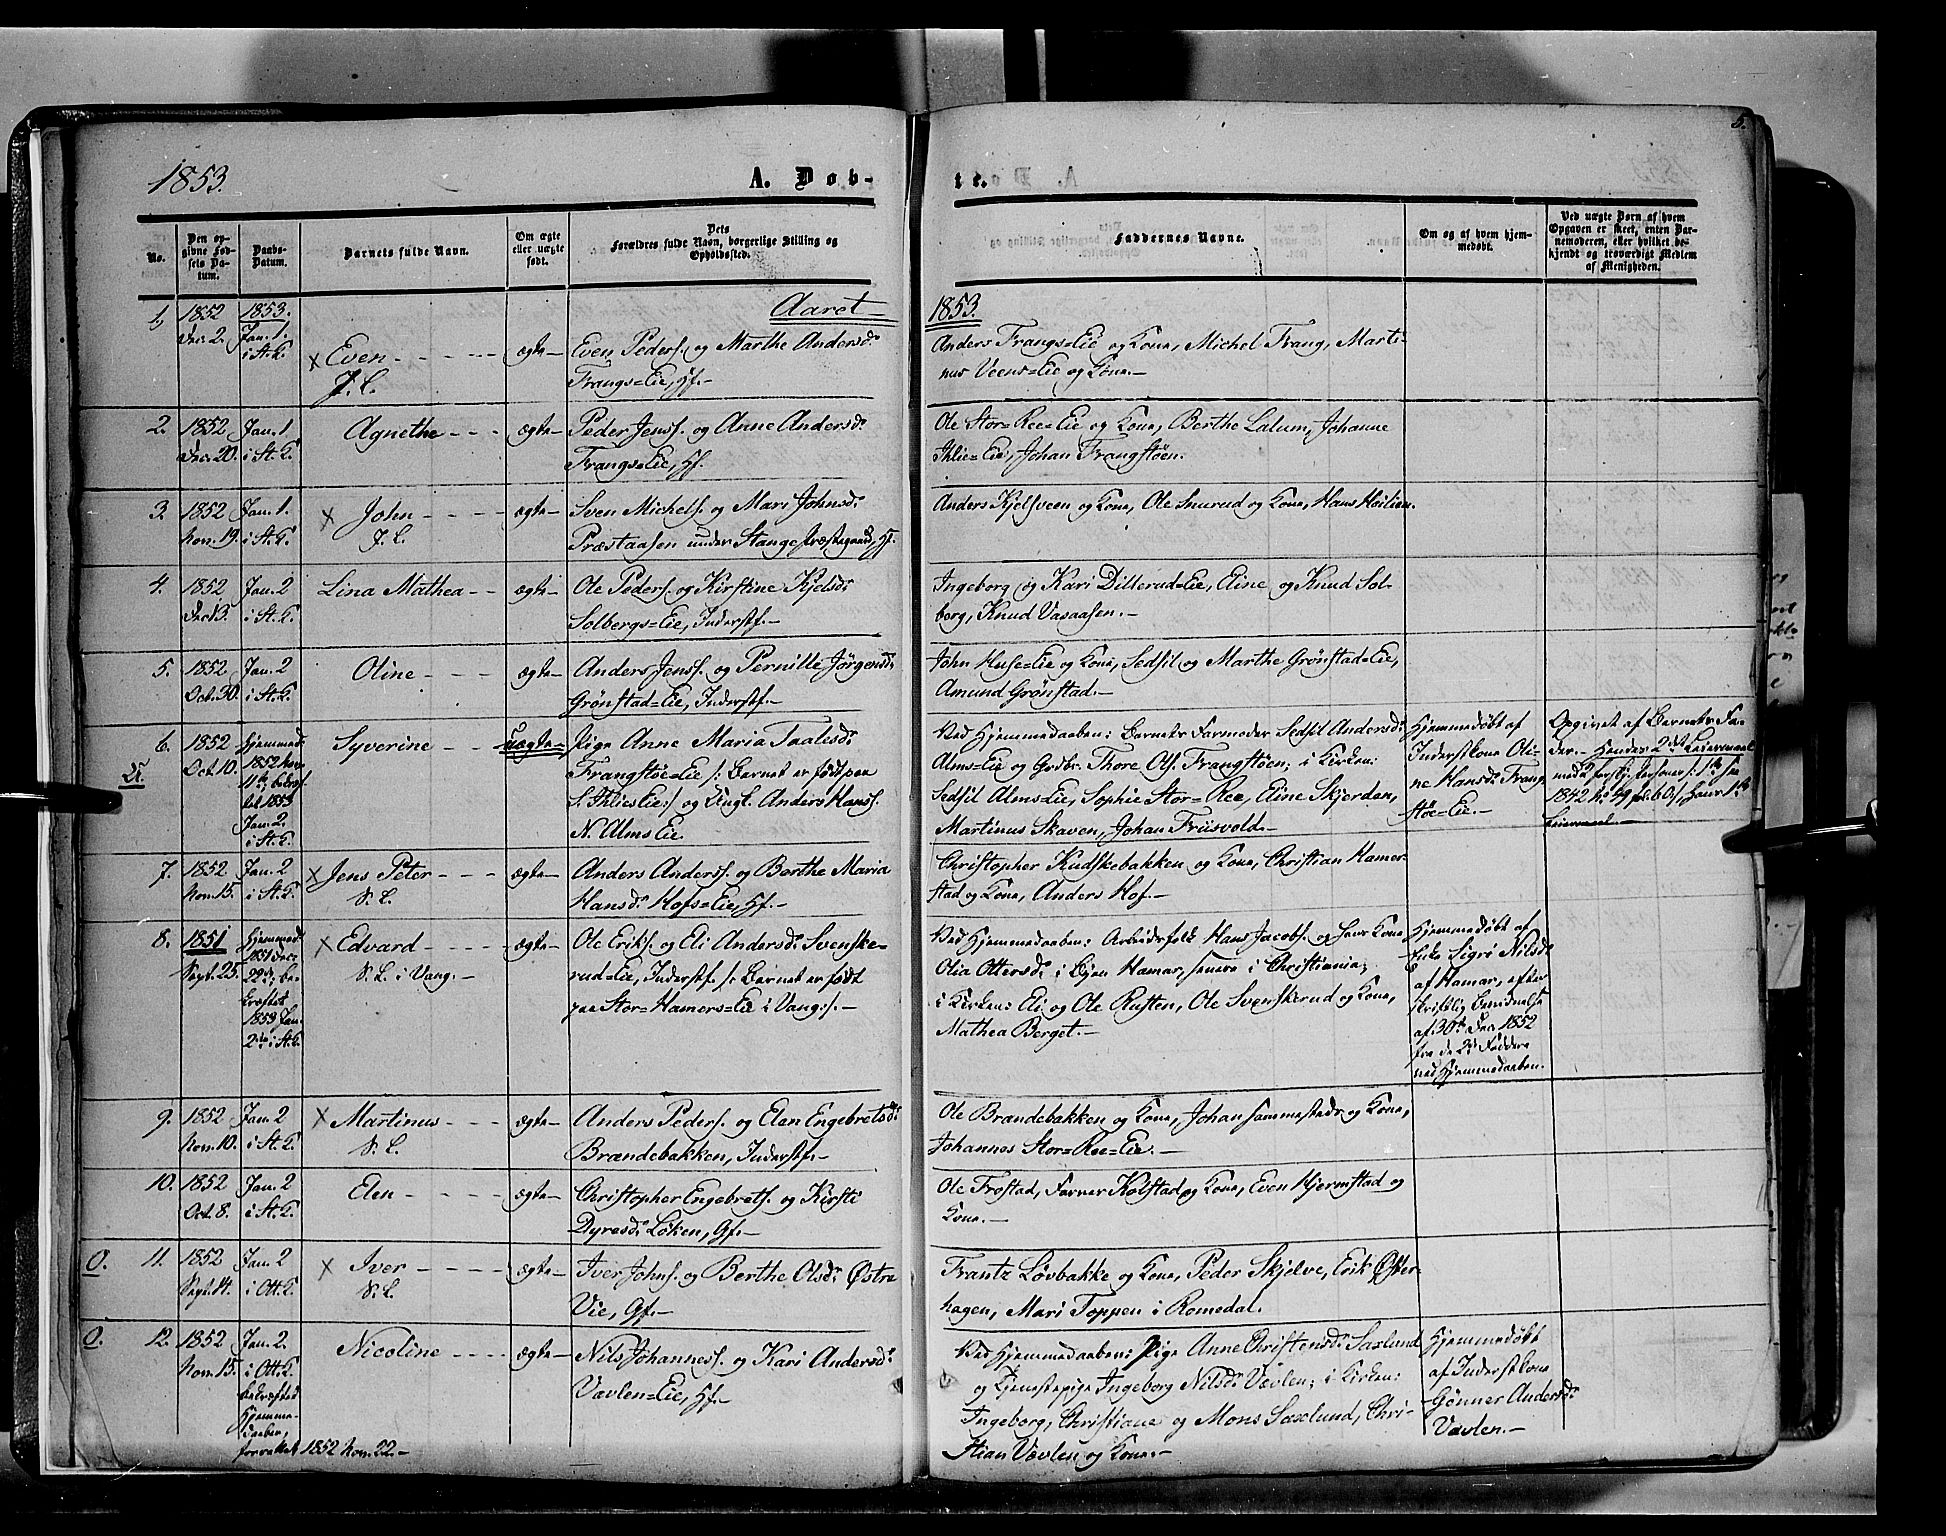 5.
1853.
A. Døb-
te.
No.
Den opgivne Fødsels Datum.
Daabs-Datum.
Barnets fulde Navn.
Om ægte eller uægte født.
Dets Forældres fulde Navn, borgerlige Stilling og Opholdssted.
Faddernes Navne.
Om og af hvem hjemmedøbt.
Ved uægte Børn af hvem Opgaven er skeet, enten Barnemoderen, eller hvilket bekjendt og troværdigt Medlem af Menigheden.
Aaret
1853.
1, 1852 Dec. 2.
1853. Jan. 1. i St. K.
x Even
ægte
Even Peders. og Marthe Andersd.
Frangs=Eie, Hf.
Anders Frangs=Eie og Kone, Michel Frang, Marti-
nus Veens=Eie og Kone.
2. 1852 Dec. 20.
Jan. 1 i St. K.
Agnethe
ægte
Peder Jenss. og Anne Andersd.
Frangs=Eie, Hf.
Ole Stor=Ree=Eie og Kone, Berthe Lalum, Johanne
Ihlie=Eie, Johan Frangstøen.
3. 1852 Nov. 19.
Jan. 1. i St. K.
x John
ægte
Sven Michels. og Mari Johnsd.
Præstaasen under Stange Præstegaard, Hf.
Anders Kjelsveen og Kone, Ole Snurud og Kone, Hans Høilien.
4. 1852 Dec. 3.
Jan. 2 i St. K.
Lina Mathea
ægte
Ole Peders. og Kirstine Kjelsd.
Solbergs=Eie, Inderstf.
Ingeborg og Kari Dillerud=Eie, Eline og Knud Sol-
berg, Knud Vasaasen.
5. 1852 Oct. 30.
Jan. 2 i St. K.
Oline
ægte
Anders Jenss. og Pernille Jørgensd.
Grønstad=Eie, Inderstf.
John Huse=Eie og Kone, Sedsil og Marthe Grønstad=Eie,
Amund Grønstad.
6. 1852 Oct. 10.
Hjemmed. 1852 Nov. 11te, bekræftet 1853 Jan. 2. i St. K.
Syverine
uægte
Pige Anne Maria Taalesd.
Frangstøe=Eie /: Barnet er født paa
S. Ihlies Eie :/ og Ungk. Anders Hanss.
N. Alms Eie
Ved Hjemmedaaben: Barnets Farmoder Sedsil Andersd.
Alms=Eie og Grdbr. Thore Ols. Frangstøen; i Kirken:
Sedsil Alms=Eie, Sophie Stor=Ree, Eline Skjerden,
Martinus Skaven, Johan Friisvold.
Hjemmedøbt af
Inderstkone Oli-
ne Hansd. Frang
støe=Eie.
Opgivet af Barnets Fa-
der. Hendes 2det Leiermaal
med 2 forskj. Personer
1842 No 49
Leiermaal.
7. 1852 Nov. 15.
Jan. 2 i St. K.
x Jens Peter
S. L.
ægte
Anders Anderss. og Berthe Maria
Hansd. Hofs=Eie, Hf.
Christopher Kudskebakken og Kone, Christian Hamer-
stad og Kone, Anders Hof.
8. 1851 Sept. 25.
Hjemmed. 1851 Dec. 22de, bekræftet 1853 Jan. 2de i St. K.
x Edvard
S. L. i Vang.
ægte
Ole Eriks. og Eli Andersd. Svenske-
rud=Eie, Inderstf. /: Barnet er født
paa Stor=Hamers=Eie i Vang :/.
Ved Hjemmedaaben: Arbeidsfolk Hans Jacobs. og Kone
Olia Ottersd. i Byen Hamar, senere i Christiania;
i Kirken: Eli og Ole Rusten, Ole Svenskerud og Kone,
Mathea Berget.
Hjemmedøbt af
Enke Sigri Nilsd.
af Hamar, efter
skriftlig Bevidnelse
af 30te Dec. 1852
fra de 2de Faddere
ved Hjemmedaaben.
9. 1852 Nov. 10.
Jan. 2 i St. K.
x Martinus
S. L.
ægte
Anders Peders. og Elen Engebretsd.
Brændebakken, Inderstf.
Ole Brændebakken og Kone, Johan sammesteds og Kone,
Johannes Stor=Ree=Eie.
10. 1852 Oct. 8.
Jan. 2 i St. K.
Elen
ægte
Christopher Engebrets. og Kirsti
Dyresd. Løken, Gf.
Ole Frøstad, Farver Kolstad og Kone, Even Hjermstad og
Kone.
O. 11. 1852 Sept. 14.
Jan. 2 i Ott. K.
x Iver
S. L.
ægte
Iver Johns. og Berthe Olsd. Østre
Vie, Gf.
Frantz Løvbakke og Kone, Peder Skjelve, Erik Øster-
hagen, Mari Toppen i Romedal.
O. 12. 1852 Nov. 15.
Jan. 2. i Ott. K. bekræftet Hjemme-
daaben,
forrettet 1852 Nov. 22.
Nicoline
ægte
Nils Johanness. og Kari Andersd.
Vævlen=Eie, Hf.
Ved Hjemmedaaben: Pige Anne Christensd. Saxlund
og Tjenestepige Ingeborg Nilsd. Vævlen; i Kirken:
Ingeborg, Christiane og Mons Saxlund, Chri-
stian Vævlen og Kone.
Hjemmedøbt
af Inderstkone
Gønner Andersd.
Vævlen.